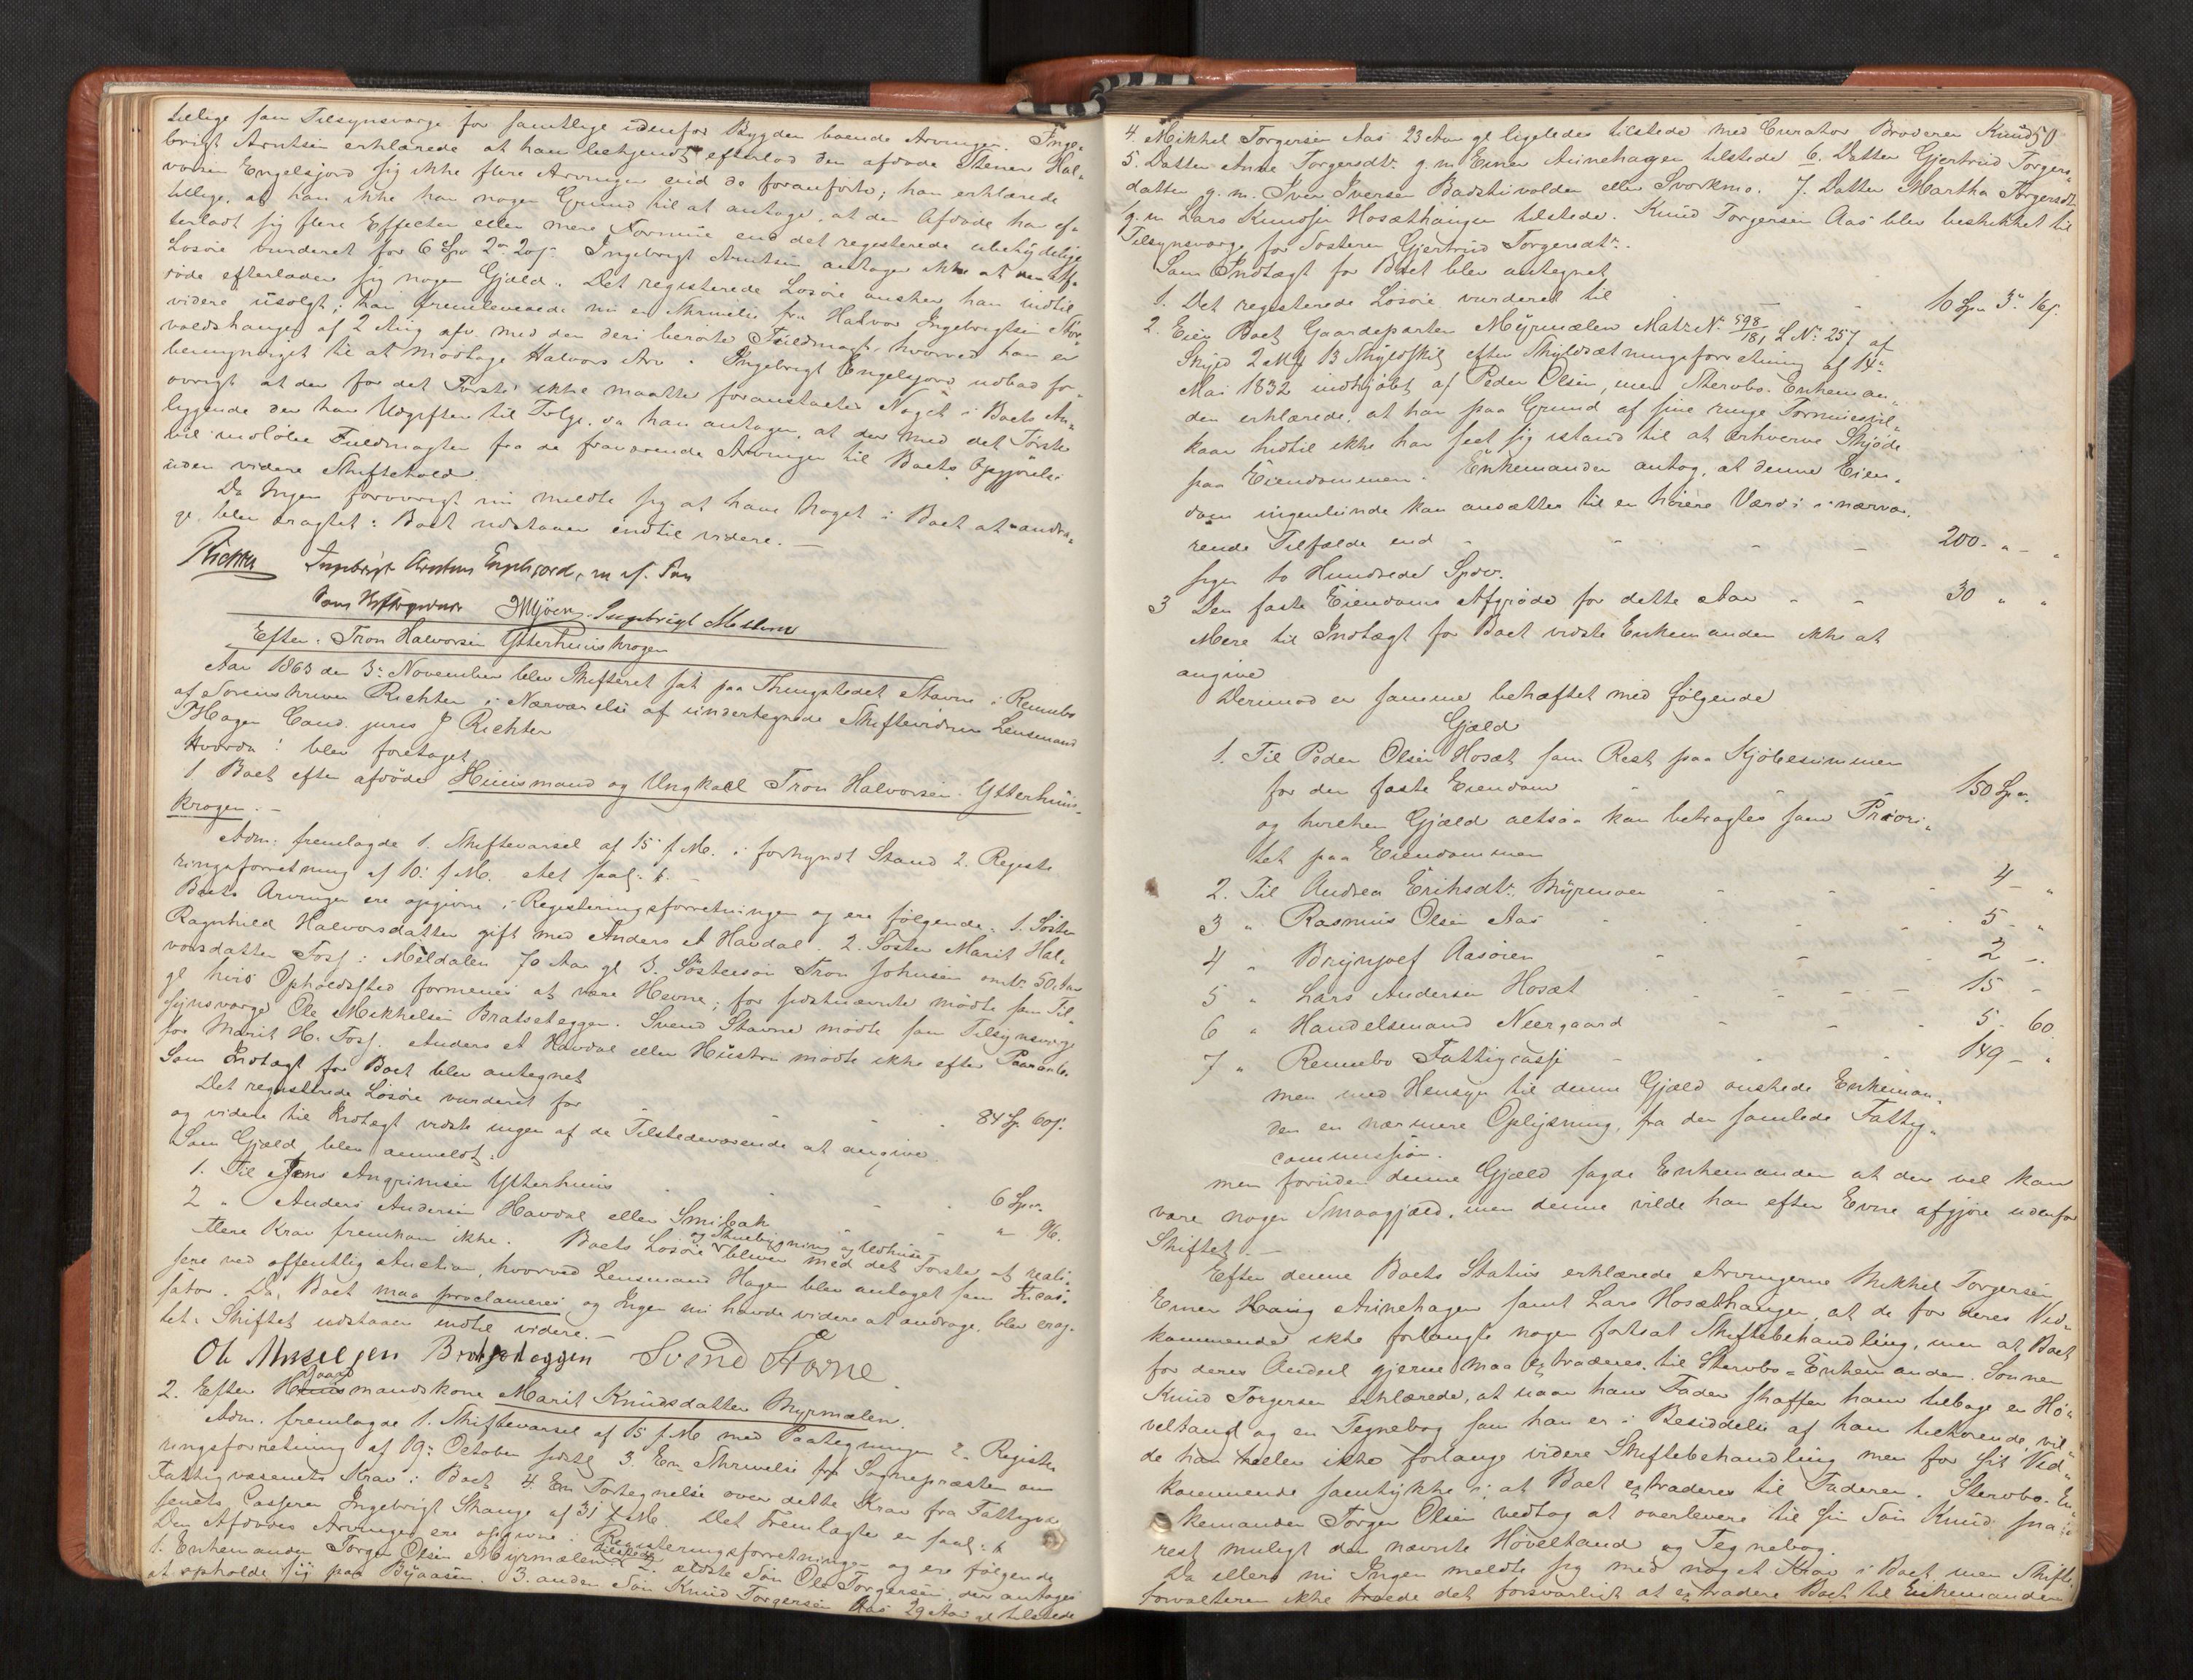 tillige som Tilsynsværge for samtlige udenfor Bygden boende Arvinger. Inge-
brigt Arntsen erklærede at han bekjendt efterlod den afdøde Stener Hal-
vorsen Engelsjord sig ikke flere Arvinger end de foranførte; han erklærede
tillige, at han ikke har nogen Grund til at antage, at den Afdøde har ef-
terladt sig flere Effecter eller mere Formue end det registerede ubetydelige
Løsøre vurderet for 6 Spd 2 20s. Ingebrigt Arntsen antager ikke at den Af-
døde efterlader sig nogen Gjæld. Det registerede Løsøre ønsker han indtil
videre usolgt; han fremleverede nu en Skrivelse fra Halvor Ingebrigtsen
voldshaugen af 2 Aug afv. med den deri berørte Fuldmagt, hvorved han er
bemyndiget til at modtage Halvors Arv. Ingebrigt Engelsjord udbad for-
øvrigt at der for det Første ikke maatte foranstaltes Noget i Boets An-
liggende der har Udgifter til Følge, da han antager, at der med det Første
vil indløbe Fuldmagter fra de fraværende Arvinger til Boets Opgjørelse
uden videre Skiftehold.
Da Ingen forøvrigt nu meldte sig at have Noget i Boet at andra-
ge blev eragtet: Boet udstaaer indtil videre.
Richter Ingebrigt Arntsen Engelsjord, m. p. Pen
JMjøen Ingebrigt Mellem
Efter Tron Halvorsen Ytterhuuskrogen
Aar 1863 den 3. November blev Skifteret sat paa Thingstedet Stavne i Rennebo
af Sorenskriver Richter i Nærværelse af undertegnede Skiftevidner Lensmand
Hagen Cand. juris J Richter
Hvorda! blev foretaget
1 Boet efter afdøde Huusmand og Ungkarl Tron Halvorsen Ytterhuus-
krogen.
Adm. fremlagde 1. Skiftevarsel af 15 f. M. i forkyndt Stand 2. Registe-
ringsforretning af 10. f. M. Alt saal. l.
Boets Arvinger ere opgivne i Registeringsforretningen og ere følgende: 1. Søster
Ragnhild Halvorsdatter gift med Anders A Havdal. 2. Søster Marit Hal-
vorsdatter Foss i Meldalen 70 Aar gl 3. Søstersøn Tron Johnsen omtr. 50 Aar
gl hvis Opholdssted formenes at være Hevne; for sidstnævnte mødte som Til-
synsværge Ole Mikkelsen Bratseteggen. Svend Stavne mødte som Tilsynsværge
for Marit H. Foss. Anders A Havdal eller Hustru mødte ikke efter Paaraab.
Som Indtægt for Boet blev antegnet
Det registerede Løsøre vurderet for 84 Sp. 60s.
og videre til Indtægt vidste ingen af de Tilstedeværende at angive.
Som Gjæld blev anmeldt:
1. Til Jens Angrimsen Ytterhuus 6 Spd.
2 " Anders Andersen Havdal eller Smibak " 96.
og Stuebygning og Udhuse
Flere Krav fremkom ikke. Boets Løsøre bliver med det Første at reali-
sere ved offentlig Auction, hvorved Lensmand Hagen blev antaget som Incas-
sator. Da Boet maa proclameres og Ingen nu havde videre at andrage, blev erag-
tet: Skiftet udstaaer indtil videre.
Ole Mikkelsen Bratseteggen Svend Stavne
2. Efter Gaardmandskone Marit Knudsdatter Myrmælen.
Adm. fremlagde 1. Skiftevarsel af 15 f. M med Paategninger 2. Registe-
ringsforretning af 19. October sidstl 3. En Skrivelse fra Sognepræsten om
Fattigvæsenets Krav i Boet 4. En Fortegnelse over dette Krav fra Fattigvæ-
senets Casserer Ingebrigt Skauge af 31 f. M. Det Fremlagte er saal. l.
Den Afdødes Arvinger ere opgivne i Registeringsforretningen og ere følgende
1. Enkemanden Torger Olsen Myrmælen tilstede 2. ældste Søn Ole Torgersen, der antages
at opholde sig paa Byaasen. 3. anden Søn Knud Torgersen Aas 29 Aar gl tilstede
50
4 Mikkel Torgersen Aas 23 Aar gl ligeledes tilstede med Curator Broderen Knud
5. Datter Anne Torgersdtr. g. m. Einer Aunehagen tilstede 6. Datter Gjertrud Torgers-
datter g. m. Iver Iversen Badstuvolden eller Svorkmo. 7. Datter Martha Torgersdtr.
g. m Lars Knudsen Hosæthaugen tilstede. Knud Torgersen Aas blev beskikket til
Tilsynsværge for Søsteren Gjertrud Torgersdtr.
Som Indtægt for Boet blev antegnet
1. Det registerede Løsøre vurderet til 16 Spd 3 16s.
2. Eier Boet Gaardeparten Myrmælen Matr No. 598/181 L No. 257 af
Skyld 2 Mk 13 Skyldskil efter Skyldsætningsforretning af 14.
Mai 1832 indkjøbt af Peder Olsen, men Stervbo-Enkeman-
den erklærede, at han paa Grund af sine ringe Formuesvil-
kaar hidtil ikke har seet sig istand til at erhverve Skjøde
paa Eiendommen. Enkemanden antog, at denne Eien-
dom ingenlunde kan ansættes til en høiere Værdi i nærvæ-
rende Tilfælde end 200 " "
siger to Hundrede Spdr.
3 Den faste Eiendoms Afgrøde for dette Aar 30 " "
Mere til Indtægt for Boet vidste Enkemanden ikke at
angive
Derimod er samme behæftet med følgende
Gjæld
1. Til Peder Olsen Hosæt som Rest paa Kjøbesummen
for den faste Eiendom 150 Spd.
og hvilken Gjæld altsaa kan betragtes som Priori-
tet paa Eiendommen
2. Til Andrea Eriksdtr. Myrmoen 4 "
3 " Rasmus Olsen Aas 5 "
4 " Brynjulf Aasøien 2 "
5 " Lars Andersen Hosæt 15 -
6 " Handelsmand Neergaard 5 60
7 " Rennebo Fattigcasse 149 "
men med Hensyn til denne Gjæld ønskede Enkeman-
den en nærmere Oplysning, fra den samlede Fattig-
commission.
men foruden denne Gjæld sagde Enkemanden at der vel kan
være nogen Smaagjæld, men denne vilde han efter Evne afgjøre udenfor
Skiftet.
Efter denne Boets Status erklærede Arvingerne Mikkel Torgersen
Einer Aunehagen samt Lars Hosæthaugen, at de for deres Ved-
kommende ikke forlangte nogen fortsat Skiftebehandling, men at Boet
for deres Andeel gjerne maa extraderes til Stervbo-Enkemanden. Sønnen
Knud Torgersen erklærede, at naar hans Fader skaffer ham tilbage en Hø-
veltand og en Tegnebog som han er i Besiddelse af ham tilhørende vil-
de han heller ikke forlange videre Skiftebehandling men for sit Ved-
kommende samtykke i, at Boet extraderes til Faderen. Stervbo-En-
kemanden Torger Olsen vedtog at overlevere til sin Søn Knud sna-
rest muligt den nævnte Høveltand og Tegnebog.
Da ellers nu Ingen meldte sig med noget Krav i Boet, men Skifte-
forvalteren ikke troede det forsvarligt at extradere Boet til Enkemanden